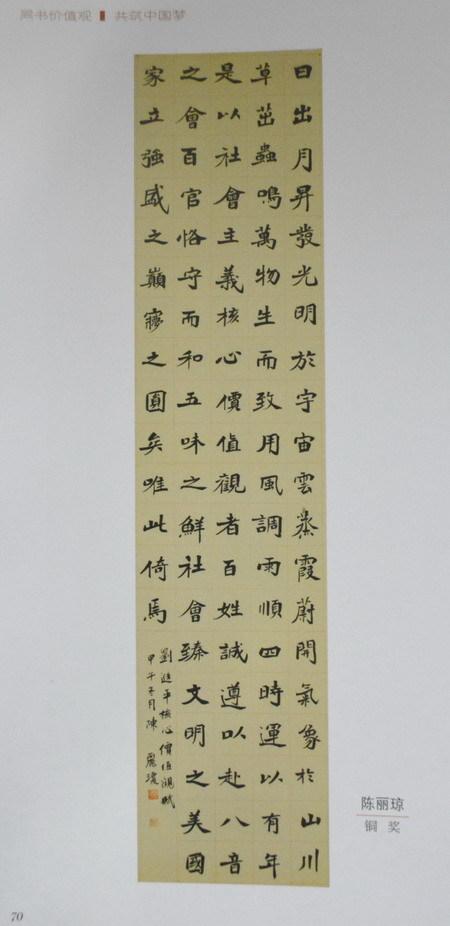 局书价值观 共筑中国梦
日出月昇發光明於宇宙雲蒸霞蔚開氣象於山川
草茁蟲鳴萬物生而致用風調雨順四時運以有年
是以社會主義核心價值觀者百姓誠遵以赴八音
之會百官恪守而和五味之鮮社會臻文明之美國
家立強盛之巔夢之圓矣唯此倚焉
劉進平核心價值觀賦
甲午冬月陳麗瓊
陈丽琼
铜奖
70